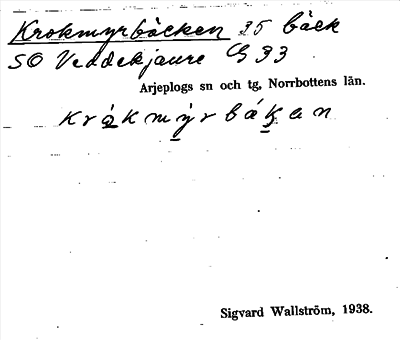 Krokmyrbäcken 25 bäck
SO Veddekjaure G 33
Arjeplogs sn och tg, Norrbottens län.
krå̀kmỳrbákan
Sigvard Wallström, 1938.